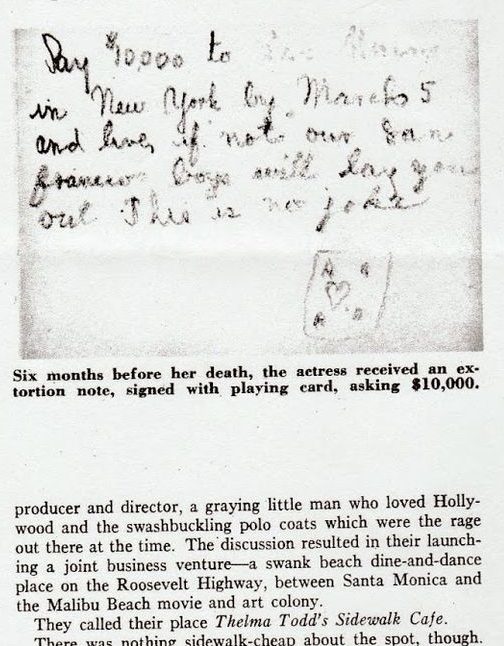 Pay $10,000 to
in New York by March 5
and live, if not our San
francisco boys will lay you
out. This is no joke
A A
A A
Six months before her death, the actress received an ex-
tortion note, signed with playing card, asking $10,000.
producer and director, a graying little man who loved Holly-
wood and the swashbuckling polo coats which were the rage
out there at the time. The discussion resulted in their launch-
ing a joint business venture—a swank beach dine-and-dance
place on the Roosevelt Highway, between Santa Monica and
the Malibu Beach movie and art colony.
They called their place Thelma Todd's Sidewalk Cafe.
There was nothing sidewalk-cheap about the spot, though.